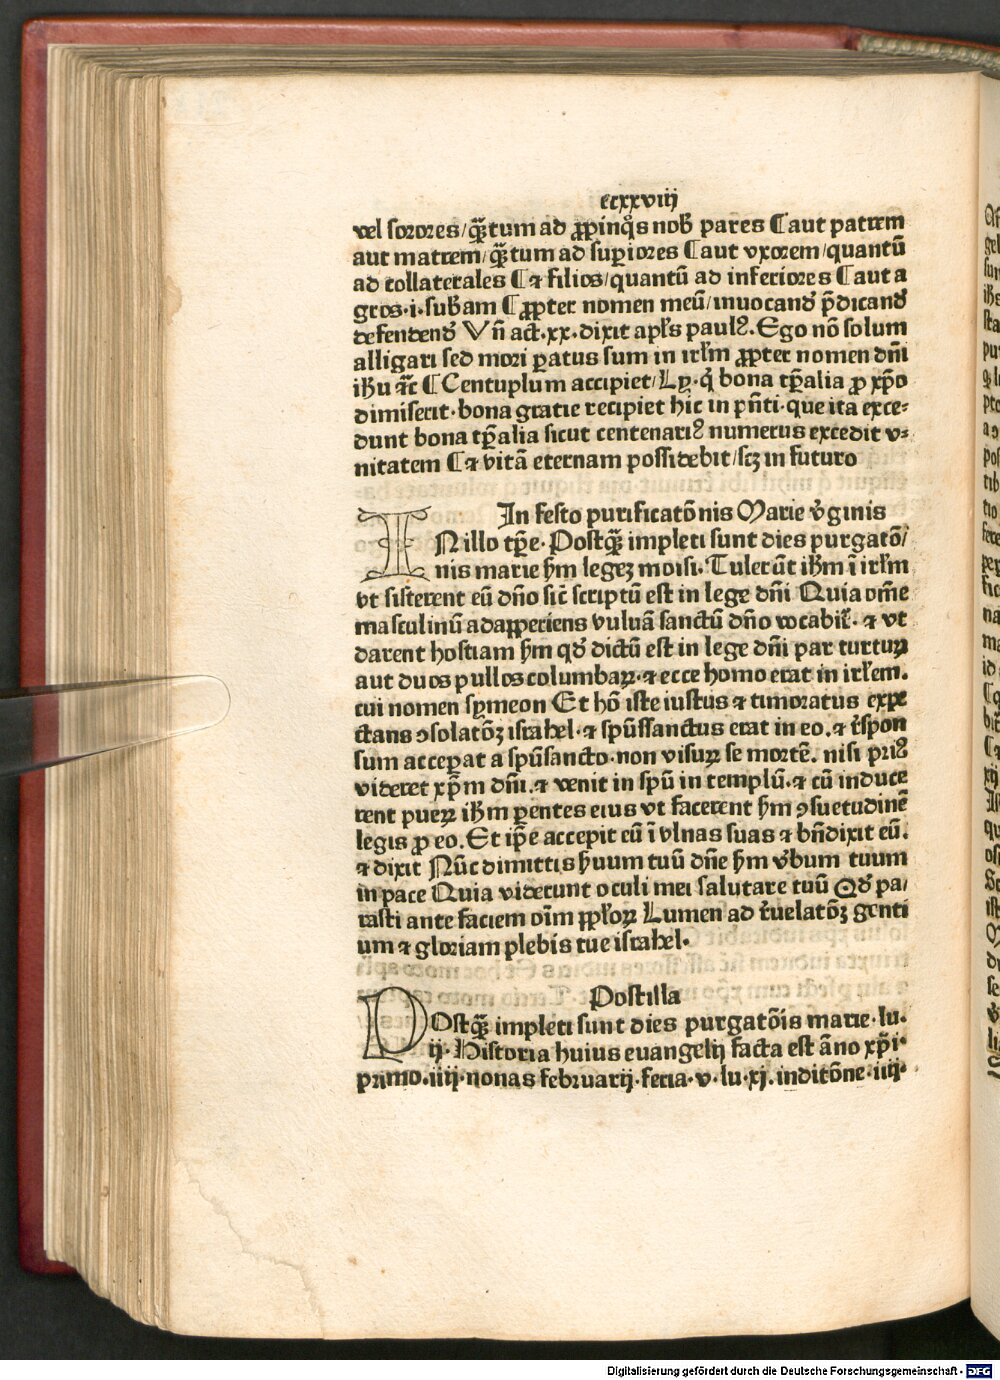 ccxxviij
vel sorores/q̃tum ad ꝓpinq̊s nob̄ pares ⸿aut patrem
aut matrem/q̃tum ad suꝑiores ⸿aut vxorem/quantū
ad collaterales ⸿⁊ filios/quantū ad inferiores ⸿aut a
gros·i·subam ⸿ꝓpter nomen meū/inuocand̓ p̄dicand̓
defendend̓ Vn̄ act·xx·dixit apl̓s paulꝰ·Ego nō solum
alligari sed mori ꝑatus sum in irl̓m ꝓpter nomen dn̄i
ih̄u ⁊c̄ ⸿Centuplum accipiet/Ly·q̓ bona tp̄alia ꝓ xp̄o
dimiserit·bona gratie recipiet hic in pn̄ti·que ita exce⸗
dunt bona tp̄alia sicut centenariꝰ numerus excedit v⸗
nitatem ⸿⁊ vitā eternam possidebit/scꝫ in futuro
In festo purificatōnis Marie v̓ginis
INillo tp̄e·Postq̃ impleti sunt dies purgatō/
nis marie hm̄ legeꝫ moisi·Tulerūt ih̄m ī irl̓m
vt sisterent eū dn̄o sic̄ scriptū est in lege dn̄i Quia om̄e
masculinū adaꝑperiens vuluā sanctū dn̄o vocabit̓·⁊ vt
darent hostiam hm̄ qd̓ dictū est in lege dn̄i par turtuꝝ
aut duos pullos columbaꝝ·⁊ ecce homo erat in irl̓em·
cui nomen symeon Et hō iste iustus ⁊ timoratus expe
ctans ꝯsolatōꝫ israhel·⁊ spūssanctus erat in eo·⁊ r̓spon
sum acceꝑat a spūsancto·non visuꝝ se mortē·nisi priꝰ
videret xp̄m dn̄i·⁊ venit in spū in templū·⁊ cū induce
rent pueꝝ ih̄m ꝑentes eius vt facerent hm̄ ꝯsuetudinē
legis ꝓ eo·Et ip̄e accepit eū ī vlnas suas ⁊ bn̄dixit eū·
⁊ dixit Nūc dimittis ẜuum tuū dn̄e hm̄ v̓bum tuum
in pace Quia viderunt oculi mei salutare tuū Qd̓ pa/
rasti ante faciem oīm ppl̓oꝝ Lumen ad r̓uelatōꝫ genti
um ⁊ gloriam plebis tue israhel·
Postilla
POstq̃ impleti sunt dies purgatōis marie·lu·
ij·Historia huius euangelij facta est āno xp̄i·
primo·iiij·nonas februarij·feria·v·lu·xj·inditōne·iiij·
Digitalisierung gefördert durch die Deutsche Forschungsgemeinschaft - DFG